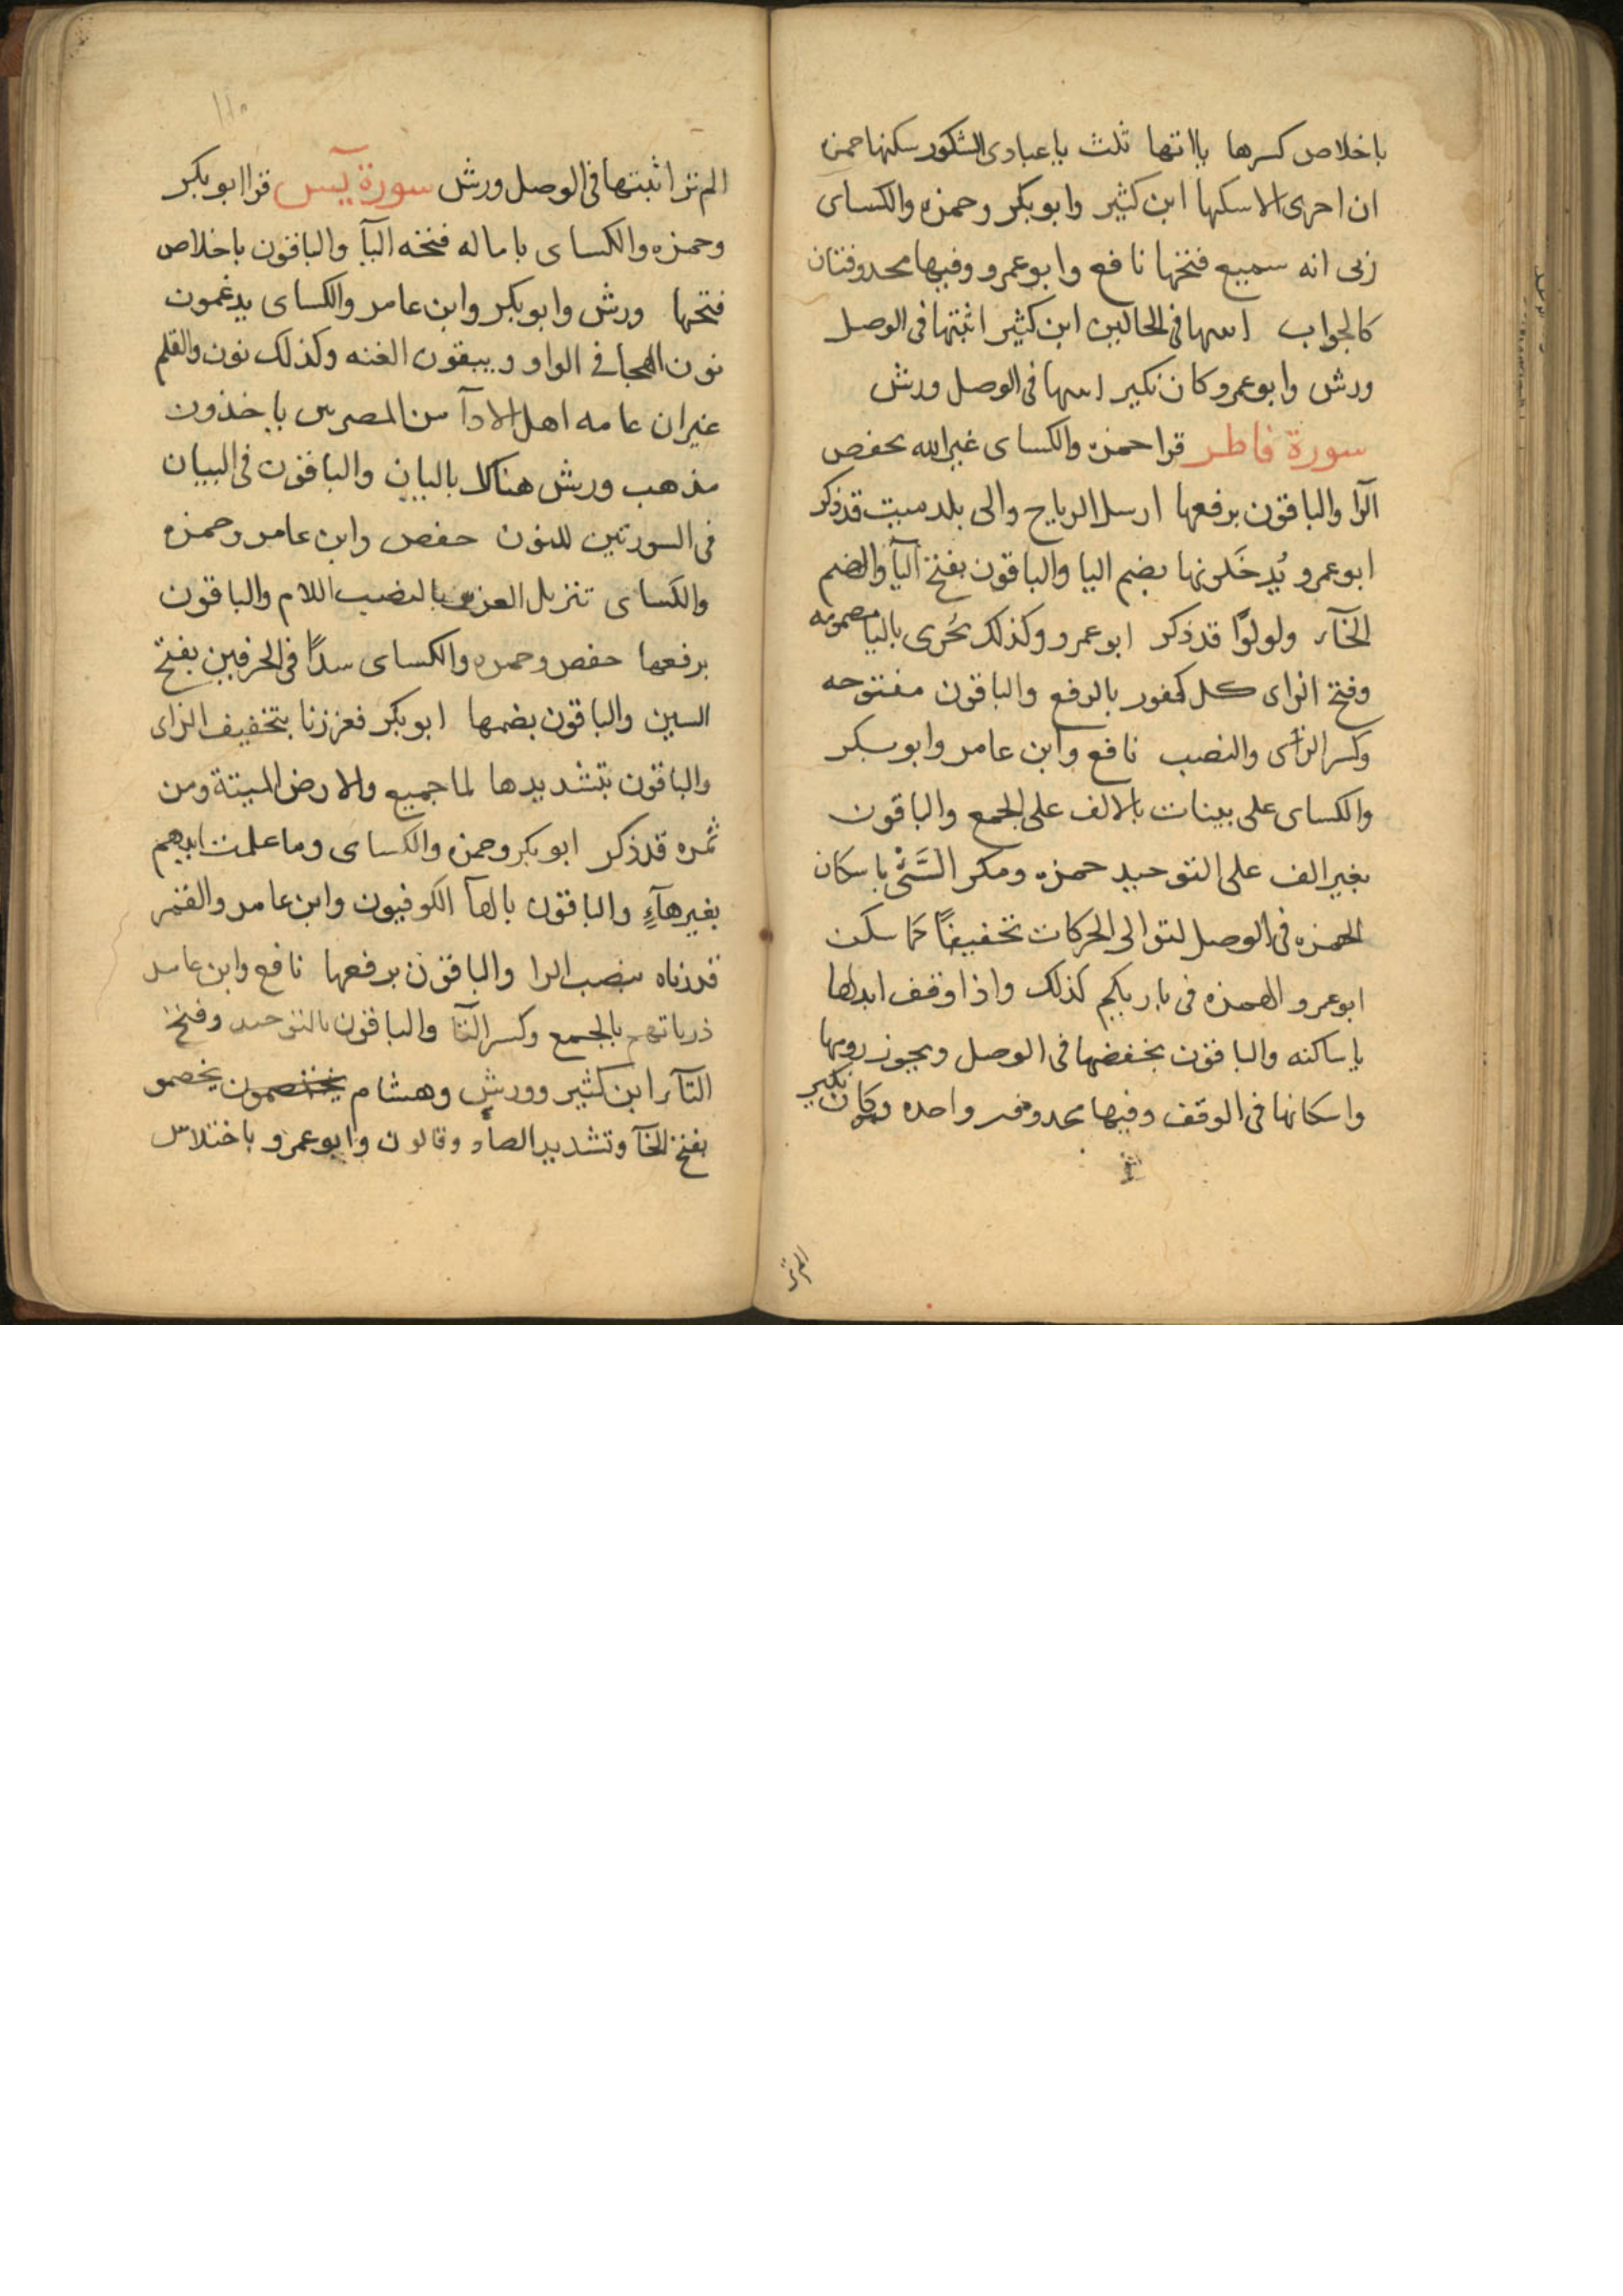 باخلاص كسرها يااتها ثلث ياعبادى الشكور سكنها حمزه
ان اجرى الا سكنها ابن كثير وابوبكر وحمزه والكساى
ربى انه سميع فتحها نافع وابوعمرو وفيها محذوفتان
كالجواب اسها فى الحالين ابن كثير اثبتها فى الوصل
ورش وابوعمرو كان نكير اسها فى الوصل ورش
سورة فاطر قرا حمزه والكساى غير الله بخفض
الرا والباقون برفعها ارسل الرياح والى بلد ميت قد ذكر
ابوعمرو يُدخَلونها بضم اليا والباقون بفتح اليآ والضم
الخآء ولولوًا قد ذكر ابوعمرو وكذلك يُجزى باليا مضمومه
وفتح الزاى كل كفور بالرفع والباقون مفتوحه
وكسر الزاى والنصب نافع وابن عامر وابوبكر
والكساى على بينات بالالف على الجمع والباقون
بغير الف على التوحيد حمزه ومكر السَّئْ باسكان
الهمزه فى الوصل لتوالى الحركات تخفيفًا كما سكن
ابوعمرو الهمزه فى باريكم كذلك واذا وقف ابدلها
ياساكنه والباقون بخفضها فى الوصل ويجوز رومها
واسكانها فى الوقف وفيها محذوفه واحده وكان نكير
الم تر
١١٥
الم تر اثبتها فى الوصل ورش سورة يٓس قرا ابوبكر
وحمزه والكساى بامالة فتحه اليآ والباقون باخلاص
فتحها ورش وابوبكر وابن عامر والكساى يدغمون
نون الهجا فى الواو ويبقون الغنه وكذلك نون والقلم
غير ان عامه اهل الادآ من المصرين ياخذون
مذهب ورش هناك بالبيان والباقون فى البيان
فى السورتين للنون حفص وابن عامر وحمزه
والكساى تنزيل العزيز بالنصب اللام والباقون
برفعها حفص وحمزه والكساى سدًا فى الحرفين بفتح
السين والباقون بضمها ابوبكر فعززنا بتخفيف الزاى
والباقون بتشديدها لما جميع والارض الميتة ومن
ثمره قد ذكر ابوبكر وحمزه والكساى وما عملت ايديهم
بغير هآءٍ والباقون بالهآ الكوفيون وابن عامر والقمر
قدرناه بنصب الرا والباقون برفعها نافع وابن عامر
ذرياتهم بالجمع وكسر التآ والباقون بالتوحيد وفتح
التآء ابن كثير وورش وهشام يختصمون يخصمو
بفتح الخآ وتشديد الصاد وقالون وابوعمرو باختلاس